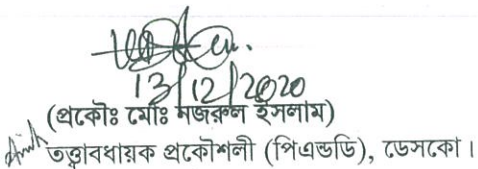 13/12/2020
(প্রকৌঃ মোঃ নজরুল ইসলাম)
তত্ত্বাবধায়ক প্রকৌশলী (পিএন্ডডি), ডেসকো।